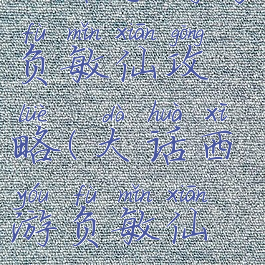 fù mǐn xiān gōng
负敏仙攻
lüè dà huà xī
略(大话西
yóu fù mǐn xiān
游负敏仙